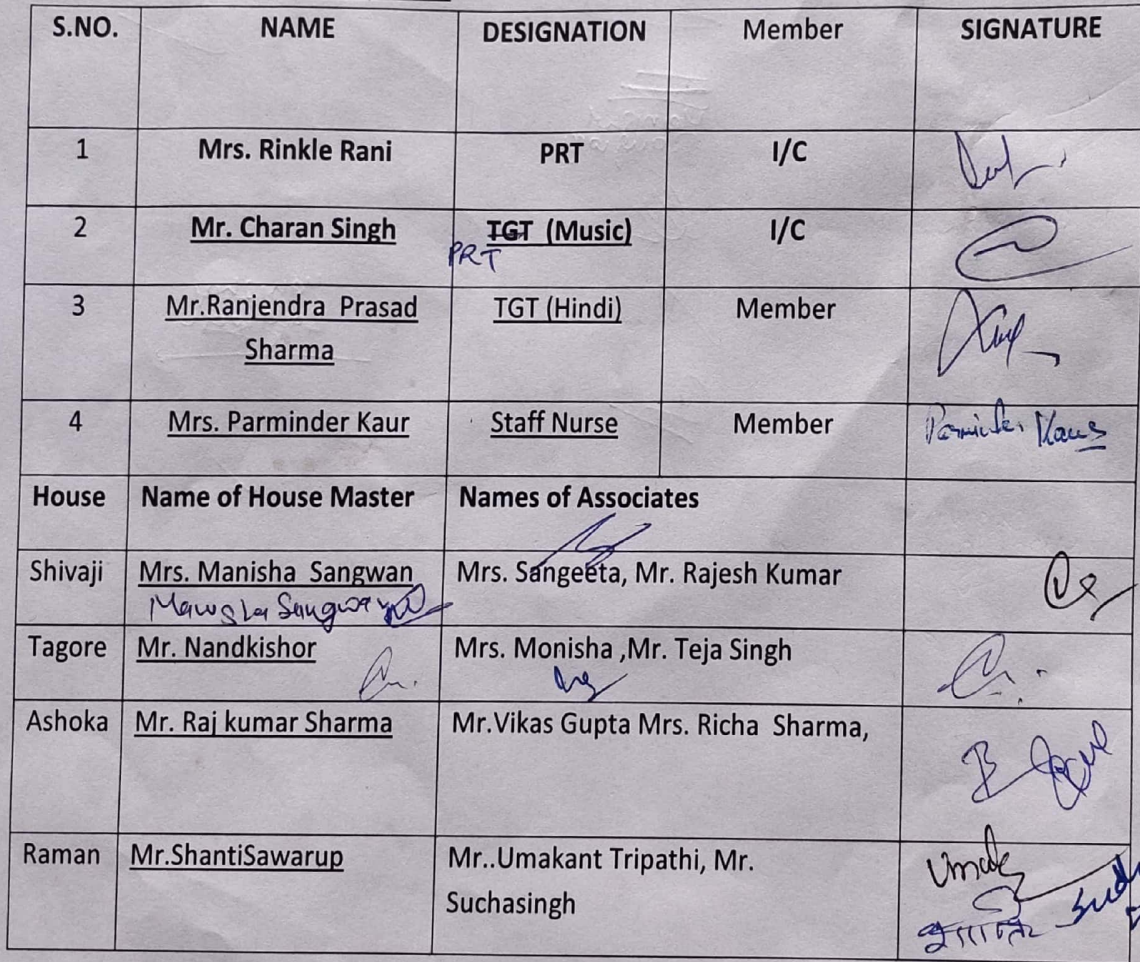 S.NO. NAME DESIGNATION Member SIGNATURE
1 Mrs. Rinkle Rani PRT I/C
2 Mr. Charan Singh TGT (Music) I/C
PRT
3 Mr.Ranjendra Prasad TGT (Hindi) Member
Sharma
4 Mrs. Parminder Kaur Staff Nurse Member Parminder Kaur
House Name of House Master Names of Associates
Shivaji Mrs. Manisha Sangwan Mrs. Sangeeta, Mr. Rajesh Kumar
Tagore Mr. Nandkishor Mrs. Monisha ,Mr. Teja Singh
Ashoka Mr. Raj kumar Sharma Mr.Vikas Gupta Mrs. Richa Sharma,
Raman Mr.ShantiSawarup Mr..Umakant Tripathi, Mr.
Suchasingh